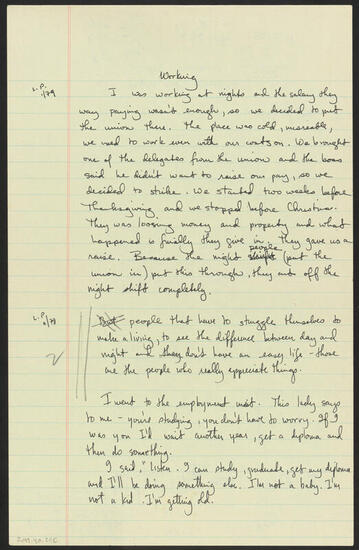 Working
L.P.
1/79
I was working at nights and the salary they
way paying wasn't enough, so we decided to put
the union there. The place was cold, miserable,
we used to work even with our coats on. We brought
one of the delegates from the union and the boss
said he didn't want to raise our pay, so we
decided to strike. We started two weeks before
Thanksgiving and we stopped before Christmas.
They was loosing money and property and what
happened is finally they give in. They gave us a
raise. Because the night people (put the
union in) put this through, they cuts off the
night shift completely.
L.P.
people that have to struggle themselves to
make a living, to see the difference between day and
night and they don't have an easy life - those
are the people who really appreciate things.
I went to the employment unit. This lady says
to me - you're studying, you don't have to worry. If I
was you I'd wait another year, get a diploma and
then do something.
I said, "listen. I can study, graduate, get my diploma
and I'll be doing something else. I'm not a baby. I'm
not a kid. I'm getting old.